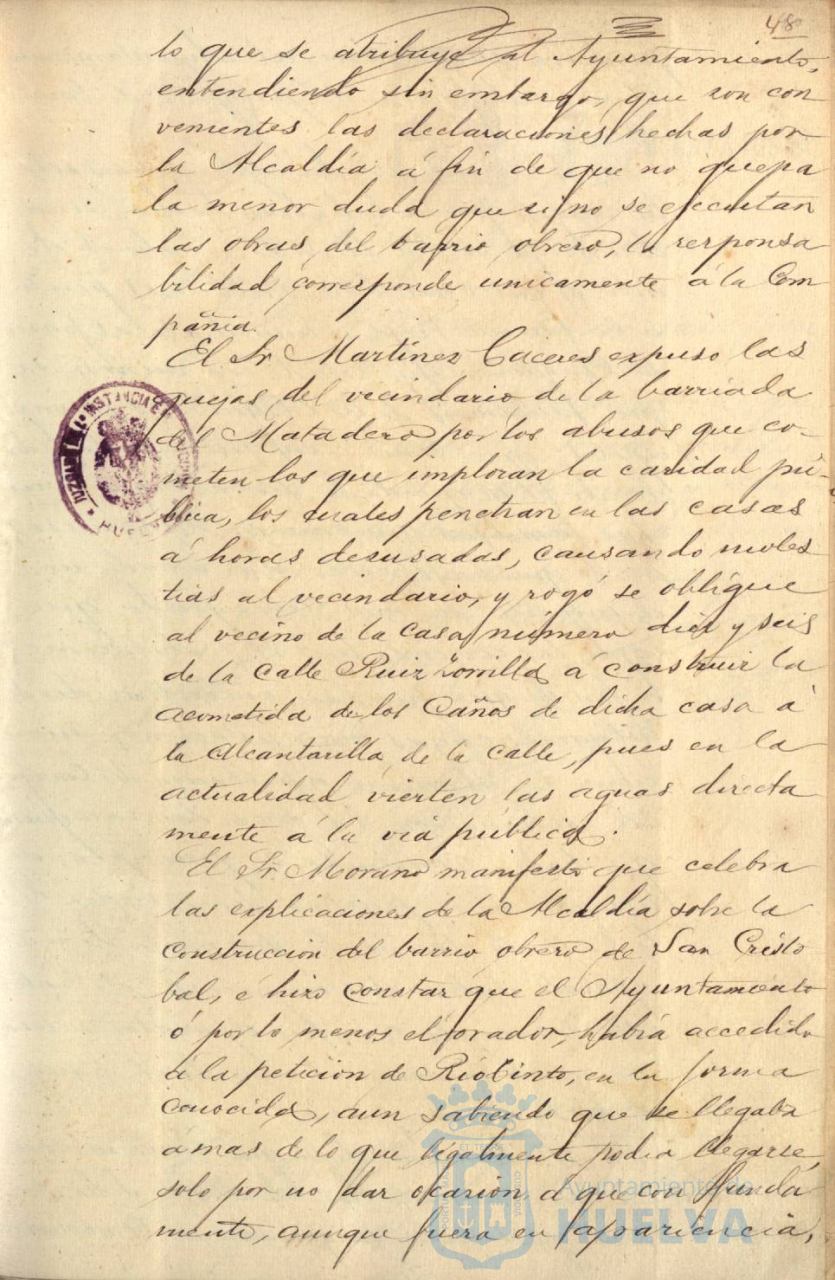 48
lo que se atribuye al Ayuntamiento,
entendiendo sin embargo, que son con
venientes las declaraciones hechas por
la Alcaldía á fin de que no quepa
la menor duda que si no se ejecutan
las obras del barrio obrero, la responsa
bilidad corresponde unicamente á la Com
pañia.
El Sr Martínez Caceres expuso las
quejas del vecindario de la barriada
del Matadero por los abusos que co-
meten los que imploran la caridad pú-
blica, los cuales penetran en las casas
á horas desusadas, causando moles
tias al vecindario, y rogó se oblígue
al vecino de la casa número diez y seis
de la calle Ruiz Zorrilla á construir la
acometida de los Caños de dicha casa á
la Alcantarilla de la calle, pues en la
actualidad vierten las aguas directa
mente á la via pública.
El Sr. Morano manifestó que celebra
las explicaciones de la Alcaldía sobre la
construccion del barrio obrero de San Cristo
bal, é hizo constar que el Ayuntamiento
ó por lo menos el orador, había accedido
á la petición de Ríotinto, en la forma
conocida, aun sabiendo que se llegaba
a mas de lo que legalmente podia llegarse,
solo por no dar ocasion a que con funda
mento, aunque fuera en apariencia,
JUZGADO 1ª INSTANCIA E
HUELVA
Ayuntamiento de
HUELVA